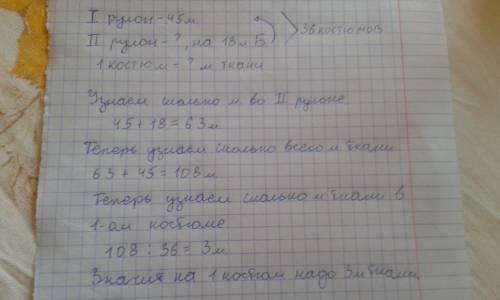 I рулон-45м
II рулон-?, на 18м Б. 36 костюмов
1 костюм=? м ткани
Узнаем сколько м во II рулоне.
45+18=63м
Теперь узнаем сколько всего м ткани
63+45=108м
Теперь узнаем сколько м ткани в
1-ом костюме
108:36=3м
Значит на 1 костюм надо 3м ткани